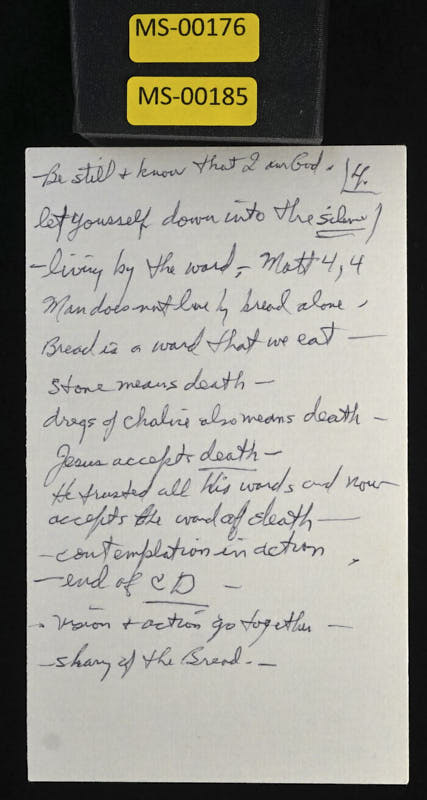 MS-00176
MS-00185
-Be still + know that I am God. 4.
let yourself down into the silence
-living by the word, - Matt 4, 4
Man does not live by bread alone.
Bread is a word that we eat —
Stone means death -
dregs of chalice also means death -
Jesus accepts death -
He trusted all his words and now
accepts the word of death —
-contemplation in action
-end of CD -
- vision + action go together -
- sharing of the Bread. -